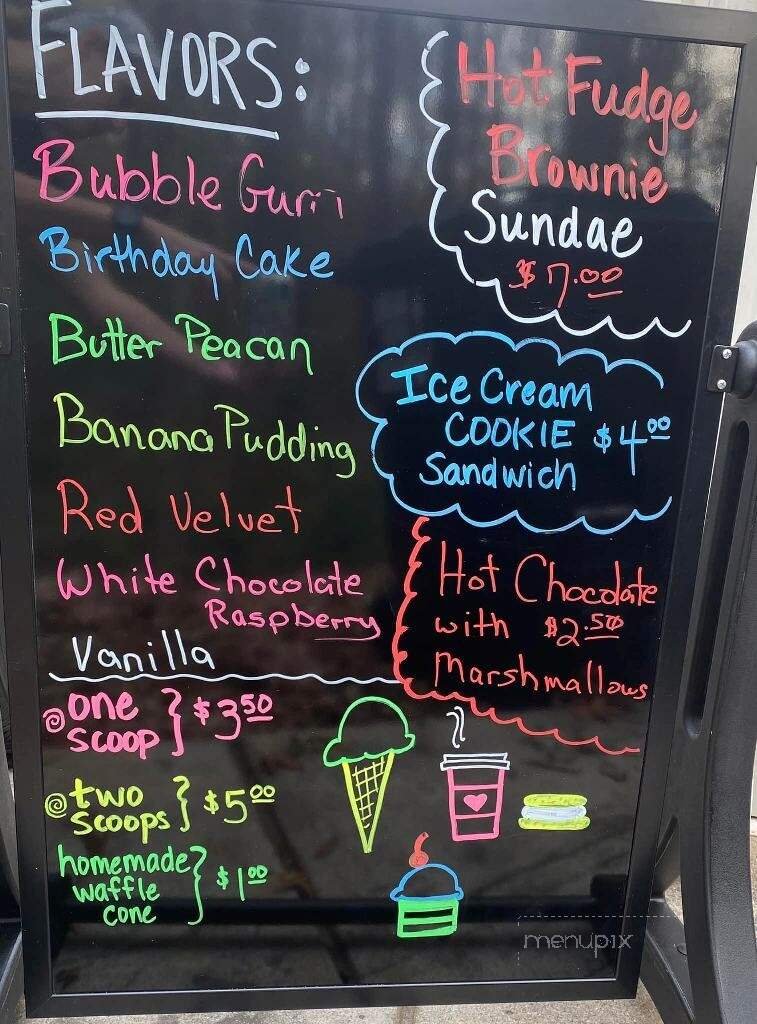 FLAVORS:
Bubble Gum
Birthday Cake
Butter Peacan
Banana Pudding
Red Velvet
White Chocolate
Raspberry
Vanilla
one
scoop } $3.50
two
scoops } $5.00
homemade
waffle
cone } $1.00
Hot Fudge
Brownie
Sundae
$7.00
Ice Cream
COOKIE $4.00
Sandwich
Hot Chocolate
with $2.50
Marshmallows
menupix